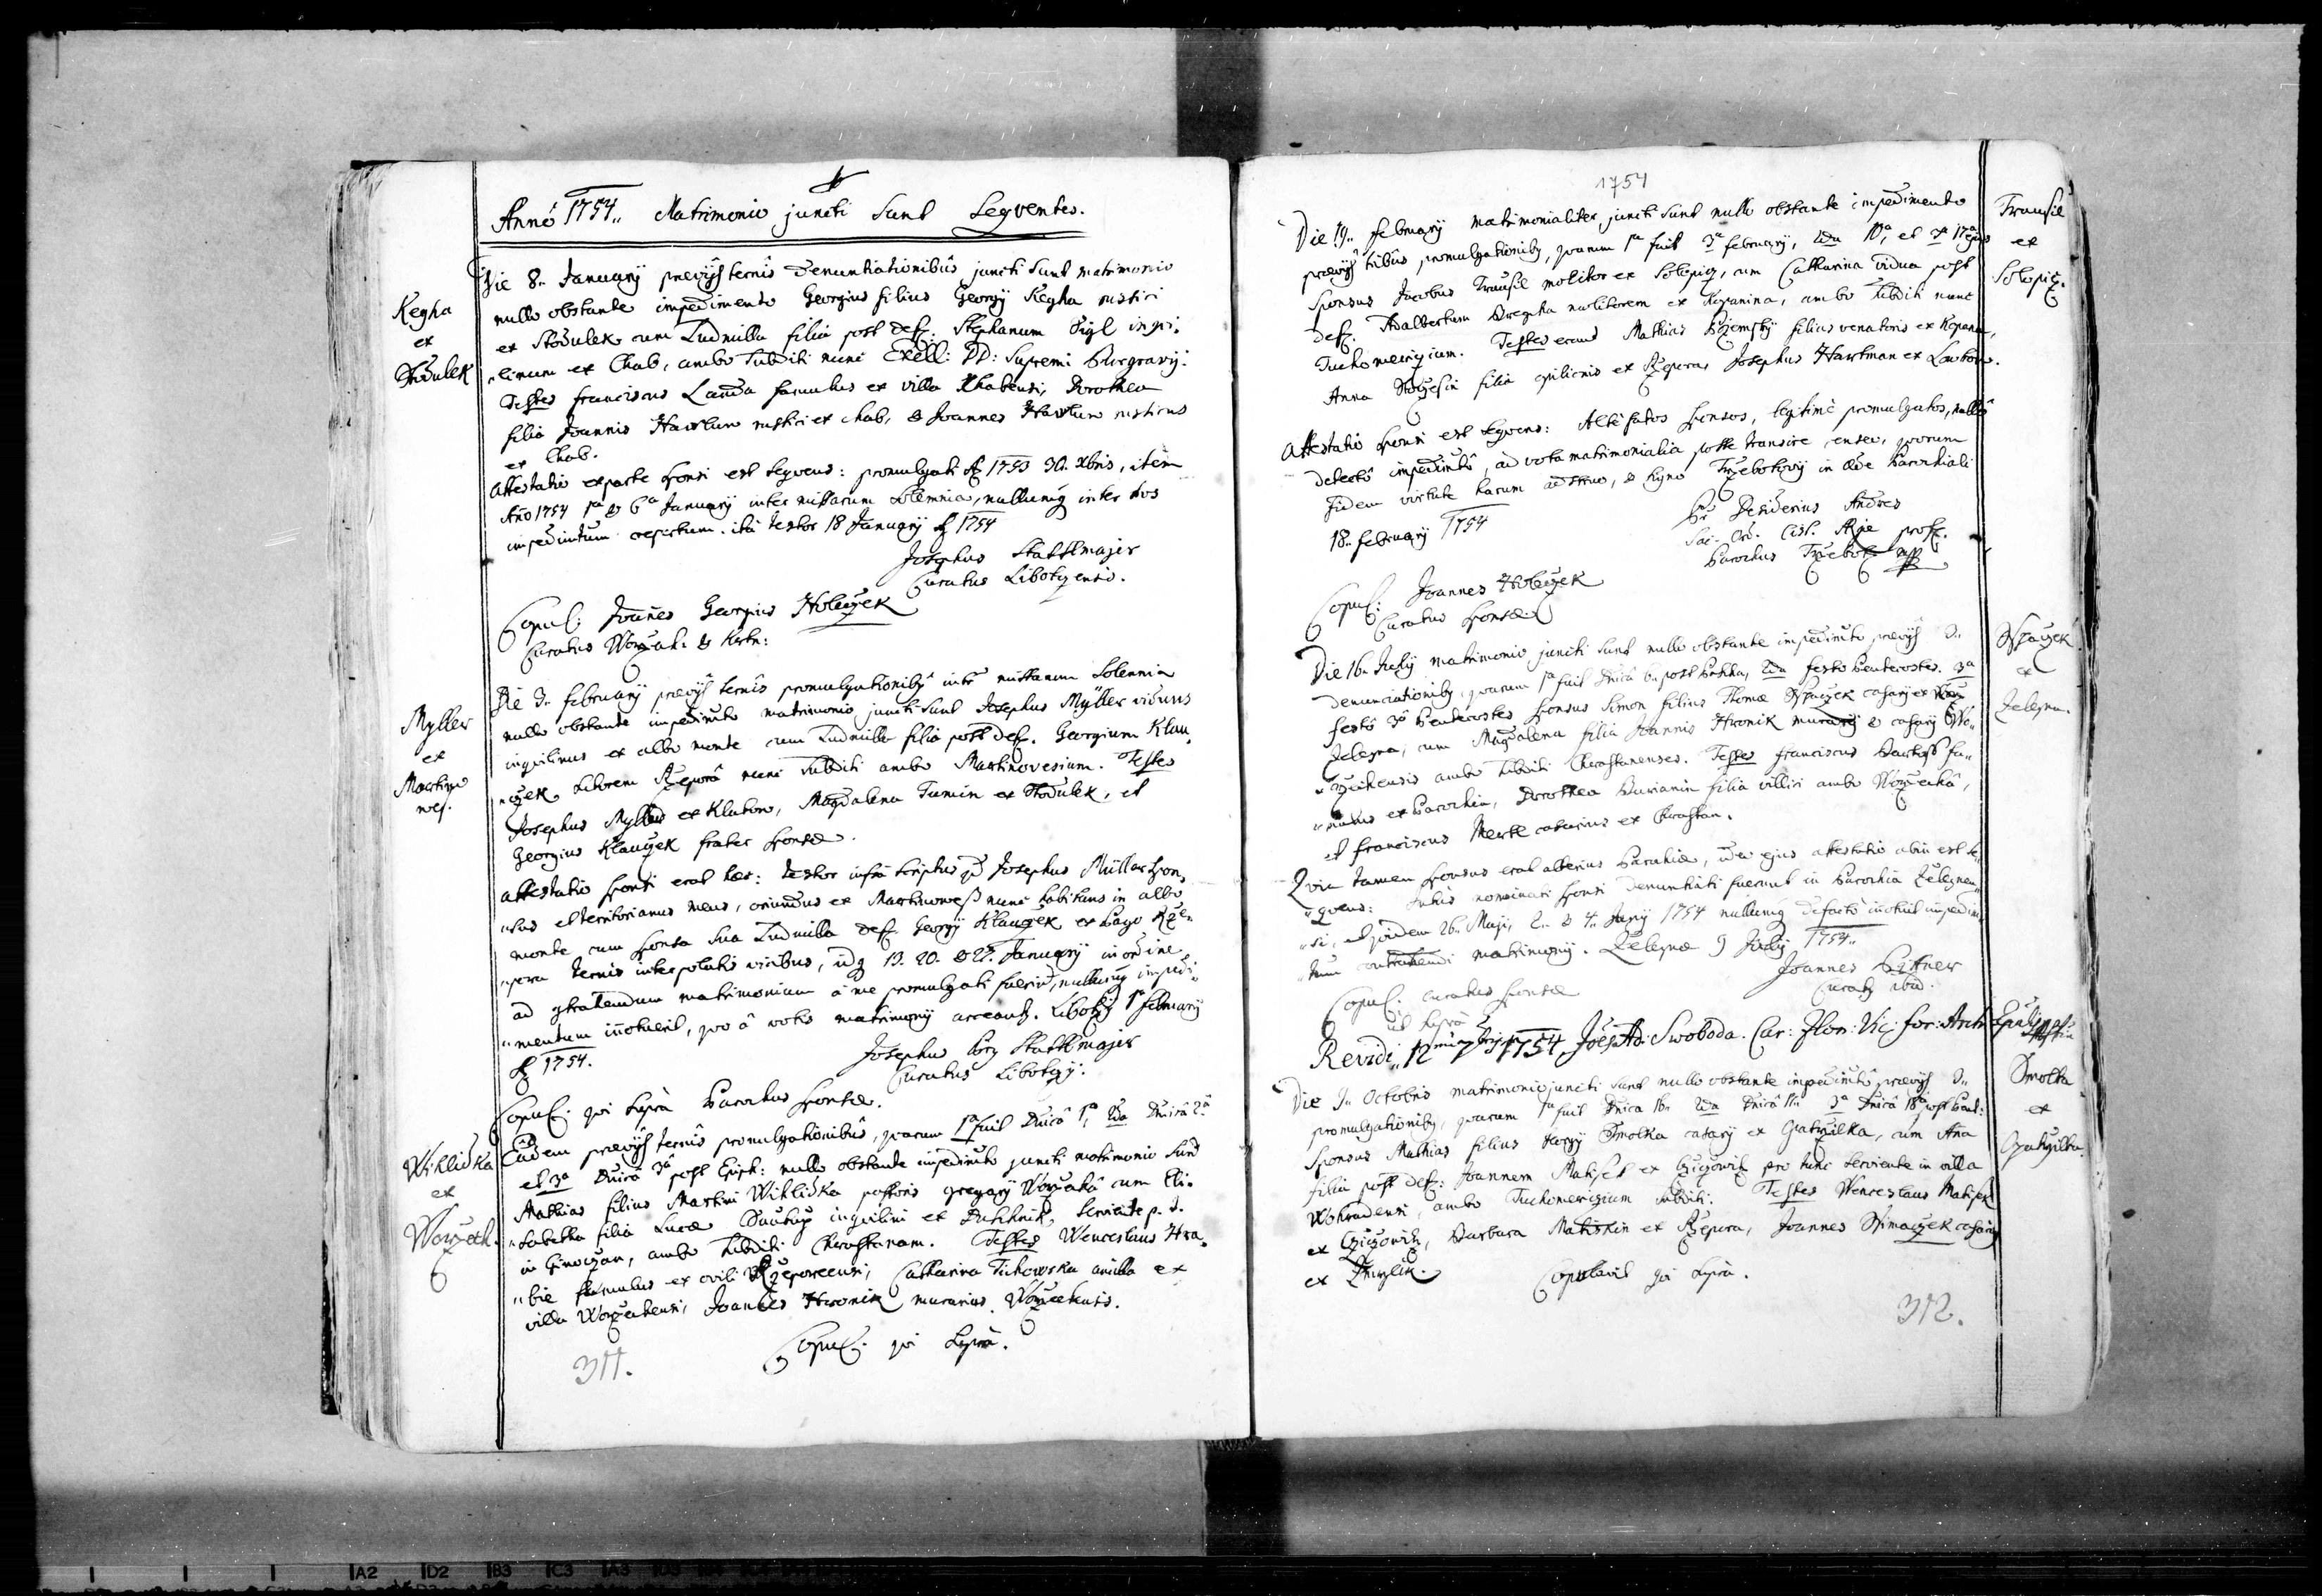 Anno 1754„ Matrimonio juncti sunt seqventes.
Kegha
ex
Stodulek
Die 8. January prævijs ternis denuntiationibus juncti sunt matrimonio
nullo obstante impedimento Georgius filius Georgij Kegha rustici
ex Stodulek cum Ludmilla filia post def. Stephanum Vigl inqvi„
„linum ex Chab, ambo subditi nunc Excell: DD: Supremi Burgravij:
Testes Franciscus Landa famulus ex villa Chabensi, Dorothea
filia Joannis Hawlum rustici ex Chab, & Joannes Hawlum rusticus
ex Chab.
Attestatio ex parte sponsi est seqvens: promulgati A 1753 30. Xbris, item
Año 1754 1a & 6a January inter missarum solemnia, nullumq inter hos
impedimtum repertum. ita testor 18 January A 1754
Josephus Stattlmajer
Curatus Libotzensis.
Copul: Joannes Georgius Holeczek
Curatus Worzech: & Kwtn:
Myller
ex
Martino
wes.
Die 3. February prævijs ternis promulgationibq inter missarum solennia
nullo obstante impedimto matrimonio juncti sunt Josephus Myller viduus
inqvilinus ex albo monte cum Ludmilla filia post def. Georgium Klau„
„czek ex Rzeporÿ nunc subditi ambo Martinovesium. Testes
Josephus Myller ex Klukow, Magdalena Tumin ex Stodulek, et
Georgius Klauczek frater sponsæ.
Attestatio sponsi erat hæc: testor infra scriptus qd Josephus Müller spon„
„sus et territorianus meus, oriundus ex Martinowess nunc habitans in albo
monte cum sponsa sua Ludmilla def. Georgij Klauczek ex pago Rze„
„pora ternis interpolatis vicibus, idq 13. 20. & 27. January in ordine
ad contrahendum matrimonium â me promulgati fuerint, nullumq impedi„
„mentum innotuerit, quo â votis matrimonij arceantq. Libotzij 1a February
A 1754.
Josephus Stattlmajer
Curatus Libotzij.
Copul. qvi supra Parochus sponsæ.
Wihlidka
ex
Worzech.
Eâdem prævijs ternis promulgationibus, qvarum 1a fuit Dnicâ 1a, 2da Dnicâ 2â
et 3a Dnicâ 3â post Epiph: nullo obstante impedimto juncti matrimonio sunt
Mathias filius Martini Wihlidka pastoris gregarij Worzechâ cum Eli„
„sabetha filia Lucæ Saukup inqvilini ex Duschnik, serviente p. t.
in Ginoczan, ambo subditi Chrastanam. Testes Wenceslaus Hra„
„bie famulus ex ovili Rzeporicensi, Catharina Tichowska ancilla ex
villa Worzechensi, Joannes Hronik murarius Worzechensis.
Copul. qvi supra.
311.
1754
Trausil
ex
Solopiz.
Die 19. February matrimonialiter juncti sunt nullo obstante impedimento
prævijs tribus promulgationibq, qvarum 1a fuit 3a February, 2da 10a, et 3a 17a ejus
sponsus Jacobus Trausil molitor ex Solopiz, cum Catharina vidua post
def. Adalbertum molitorem ex Kopanina, ambo subditi nunc
Tuchomericium. Testes erant Mathias filius venatoris ex Kopan,
Anna filia opilionis ex Rzepora, Josephus Hartman ex Lochow.
Attestatio sponsi est seqvens: Altefatos sponsos, legitime promulgatos, nullo
detecto impedimto, ad vota matrimonialia posse transire censeo, qvorum
fidem virtute harum adstruo, & signo Trzebotovij in æde Parochiali
18. February 1754
Fr Desiderius Andres
Sac. Ord. Cist. prof.
Parochus Trzebot mpp
Copul: Joannes Holeczek
Curatus sponsæ.
Spaczek
ex
Zelezna.
Die 16. July matrimonio juncti sunt nullo obstante impedimto prævijs 3.
denunciationibq, qvarum 1a fuit Dnicâ 6. post Pascha, 2da festo Pentecostes. 3a
festo 3o Pentecostes sponsus Simon filius Thomæ Spaczek casarij ex
Zelezna, cum Magdalena filia Joannis Hronik murarij & casarij Wo„
„rzechensis ambo subditi Chrastanenses. Testes Franciscus fa„
„mulus ex Parochia, Dorothea Burianin filia villici ambo Worzechâ,
et Franciscus Merkl casarius ex Chrastan.
Qvia tamen sponsus erat alterius Parochiæ, ideo ejus attestatio abin est se„
„qvens: Intus nominati sponsi denuntiati fuerunt in Parochia Zeleznen„
„si, et qvidem 26. Maji, 2. & 4. Juny 1754 nullumq defacto innotuit impedim„
„tum contrahendi matrimonij. Zeleznæ 9 July 1754.
Joannes Bittner
Curatq ibid.
Copul. curatus sponsæ
ut supra
Revidi 12 7bris 1754 Joës Ad: Swoboda. Car: Zlon: Vic: for:
Smolka
ex
Die 1. Octobris matrimonio juncti sunt nullo obstante impedimto prævijs 3.
promulgationibq, qvarum 1a fuit Dnica 16. 2da Dnicâ 17. 3a Dnicâ 18â post Pent:
Sponsus Mathias filius Georgij Smolka casarij ex Gatzilka, cum Aña
filia post def: Joannem Matiset ex Cziczowitz pro tunc serviente in villa
Wohradensi, ambo Tuchomericium subditi. Testes Wenceslaus Matisek
ex Cziczowitz, Barbara Matiskin ex Rzepora, Joannes Simaczek casarius
ex Zmrzlik. Copulavit qvi supra.
312.